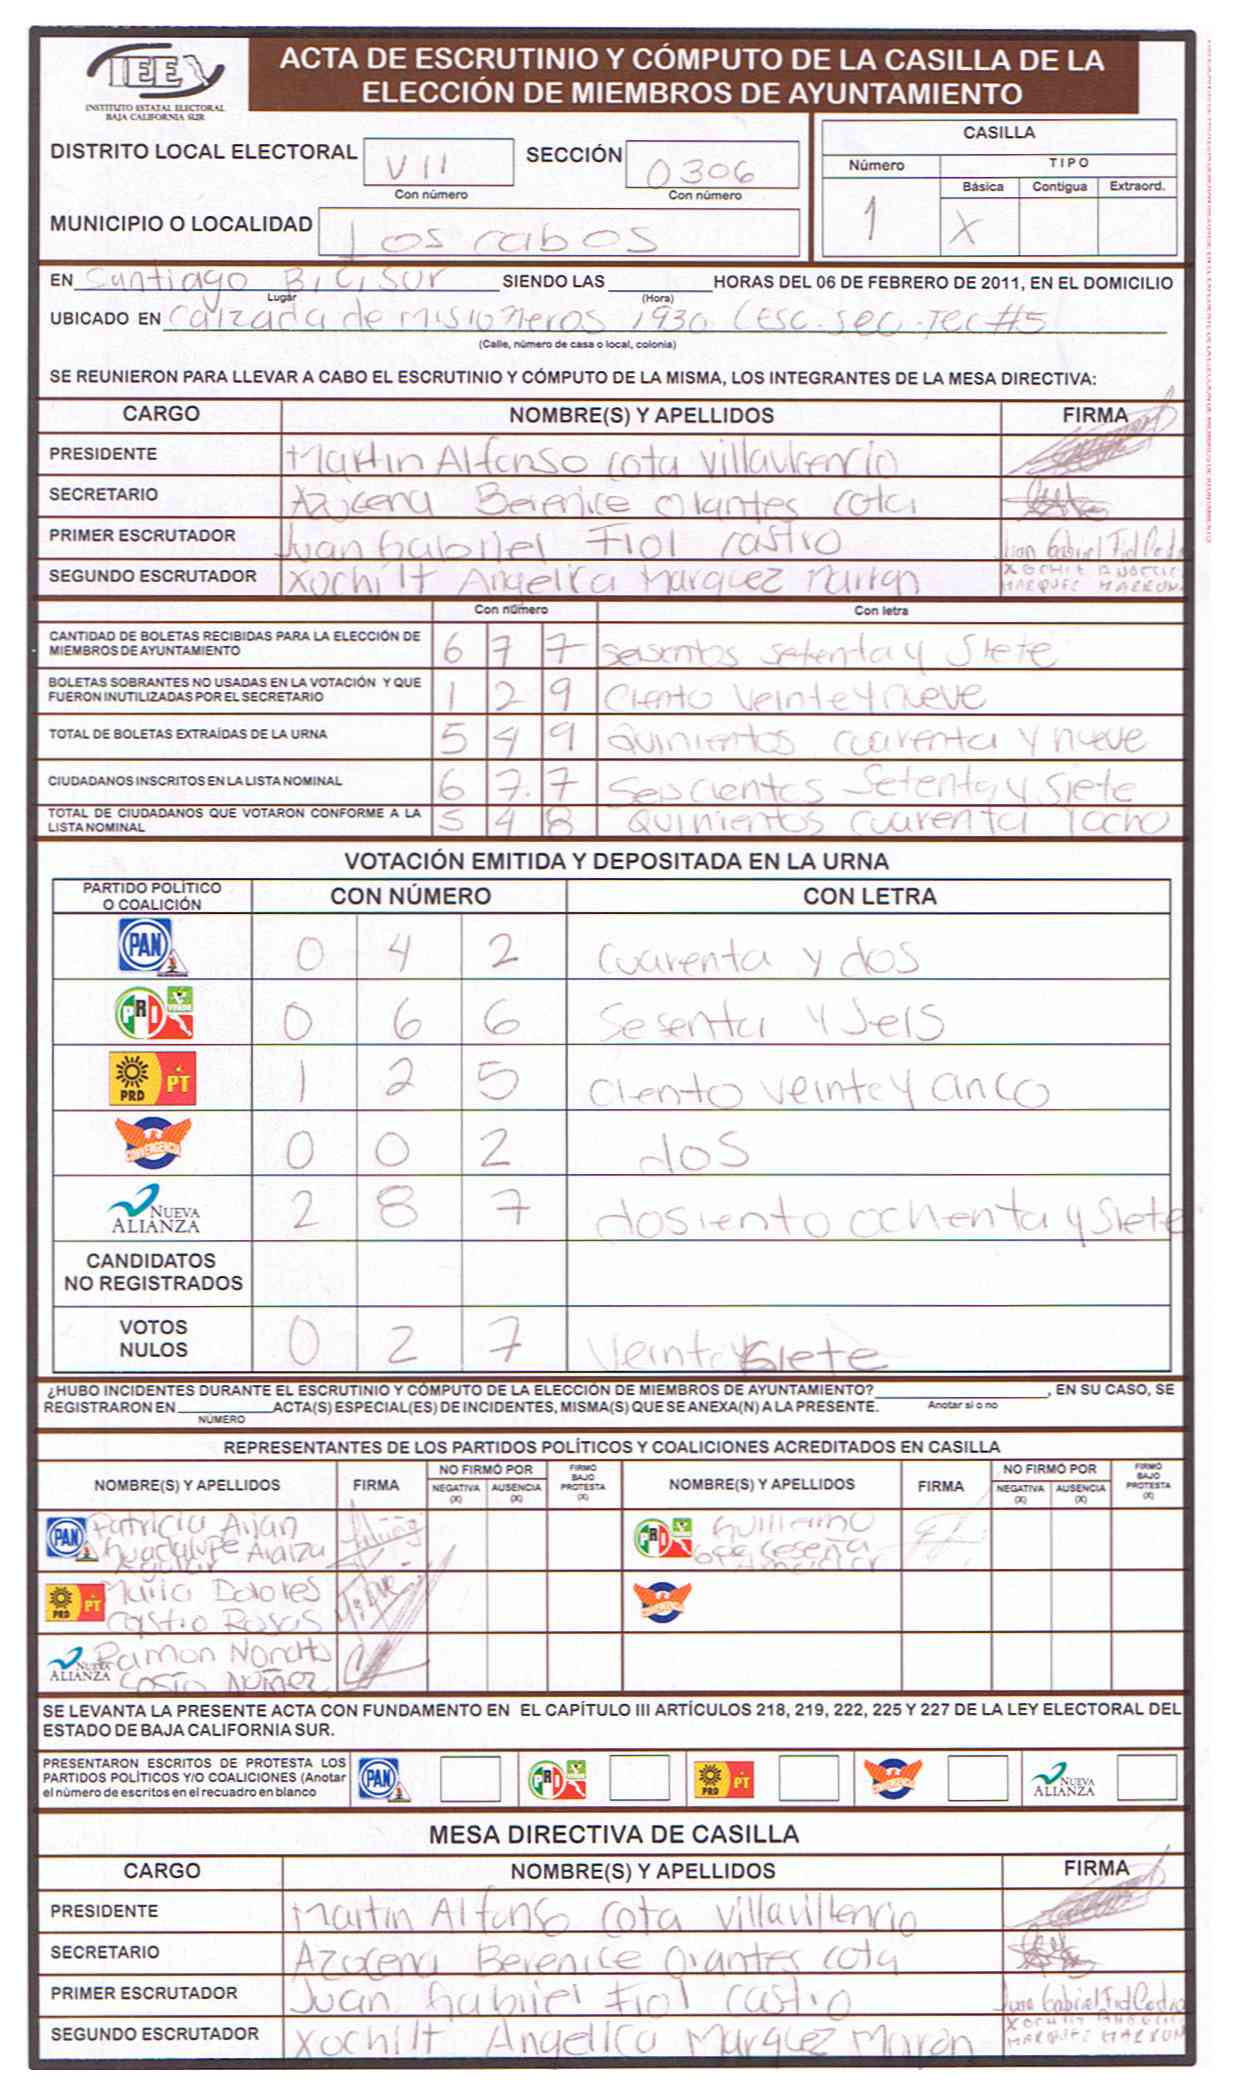 IEE
INSTITUTO ESTATAL ELECTORAL
BAJA CALIFORNIA SUR
ACTA DE ESCRUTINIO Y CÓMPUTO DE LA CASILLA DE LA
ELECCIÓN DE MIEMBROS DE AYUNTAMIENTO
DISTRITO LOCAL ELECTORAL VII SECCIÓN 0306
Con número Con número
MUNICIPIO O LOCALIDAD Los cabos
CASILLA
Número TIPO
Básica Contigua Extraord.
1 X
EN Santiago B.C.SUR SIENDO LAS HORAS DEL 06 DE FEBRERO DE 2011, EN EL DOMICILIO
Lugar (Hora)
UBICADO EN Calzada de Misioneros 1930 (Esc. Sec. Tec #5
(Calle, número de casa o local, colonia)
SE REUNIERON PARA LLEVAR A CABO EL ESCRUTINIO Y CÓMPUTO DE LA MISMA, LOS INTEGRANTES DE LA MESA DIRECTIVA:
CARGO NOMBRE(S) Y APELLIDOS FIRMA
PRESIDENTE Martin Alfonso cota Villavicencio
SECRETARIO Azucena Berenice Orantes cota
PRIMER ESCRUTADOR Juan Gabriel Fiol castro Juan Gabriel Fiol
SEGUNDO ESCRUTADOR Xochilt Angelica Marquez XOCHIT ANGELICA
MARQUEZ MARRON
Con número Con letra
CANTIDAD DE BOLETAS RECIBIDAS PARA LA ELECCIÓN DE
MIEMBROS DE AYUNTAMIENTO 6 7 7 seiscntos setenta y siete
BOLETAS SOBRANTES NO USADAS EN LA VOTACIÓN Y QUE
FUERON INUTILIZADAS POR EL SECRETARIO 1 2 9 Ciento veinte y nueve
TOTAL DE BOLETAS EXTRAÍDAS DE LA URNA 5 4 9 Quinientos cuarenta y nueve
CIUDADANOS INSCRITOS EN LA LISTA NOMINAL 6 7. 7 Seiscientos Setenta y siete
TOTAL DE CIUDADANOS QUE VOTARON CONFORME A LA
LISTA NOMINAL 5 4 8 Quinientos cuarenta Yocho
VOTACIÓN EMITIDA Y DEPOSITADA EN LA URNA
PARTIDO POLÍTICO
O COALICIÓN CON NÚMERO CON LETRA
PAN 0 4 2 Cuarenta y dos
PRI VERDE 0 6 6 Sesenta y Seis
PRD PT 1 2 5 Ciento veinte y cinco
CONVERGENCIA 0 0 2 dos
NUEVA ALIANZA 2 8 7 dosiento ochenta y siete
CANDIDATOS
NO REGISTRADOS
VOTOS
NULOS 0 2 7 Veinte y siete
¿HUBO INCIDENTES DURANTE EL ESCRUTINIO Y CÓMPUTO DE LA ELECCIÓN DE MIEMBROS DE AYUNTAMIENTO? , EN SU CASO, SE
REGISTRARON EN ACTA(S) ESPECIAL(ES) DE INCIDENTES, MISMA(S) QUE SE ANEXA(N) A LA PRESENTE. Anotar si o no
NÚMERO
REPRESENTANTES DE LOS PARTIDOS POLÍTICOS Y COALICIONES ACREDITADOS EN CASILLA
NOMBRE(S) Y APELLIDOS FIRMA NO FIRMÓ POR NEGATIVA (X) AUSENCIA (X) FIRMÓ BAJO PROTESTA (X) NOMBRE(S) Y APELLIDOS FIRMA NO FIRMÓ POR NEGATIVA (X) AUSENCIA (X) FIRMÓ BAJO PROTESTA (X)
PAN Patricia
Guadalupe Araiza
Aguilar
PRI Guillermo
Ceseña
PRD PT Maria Dolores
Castro Rosas
CONVERGENCIA
NUEVA ALIANZA Ramon
Cosio Nuñez
SE LEVANTA LA PRESENTE ACTA CON FUNDAMENTO EN EL CAPÍTULO III ARTÍCULOS 218, 219, 222, 225 Y 227 DE LA LEY ELECTORAL DEL
ESTADO DE BAJA CALIFORNIA SUR.
PRESENTARON ESCRITOS DE PROTESTA LOS
PARTIDOS POLÍTICOS Y/O COALICIONES (Anotar
el número de escritos en el recuadro en blanco
PAN PRI PRD PT CONVERGENCIA NUEVA ALIANZA
MESA DIRECTIVA DE CASILLA
CARGO NOMBRE(S) Y APELLIDOS FIRMA
PRESIDENTE Martin Alfonso cota
SECRETARIO Azucena Berenice Orantes cota
PRIMER ESCRUTADOR Juan Gabriel Fiol castro Juan Gabriel Fiol
SEGUNDO ESCRUTADOR Xochilt Angelica Marquez Maron XOCHIT ANGELICA
MARQUEZ MARRON